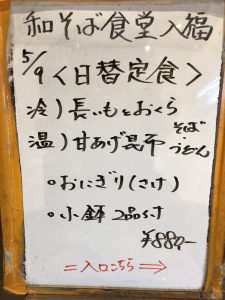 和そば食堂 入福
5/9 <日替定食>
冷)長いもとおくら
温)甘あげ昆布 そば・うどん
○おにぎり(さけ)
○小鉢 2品付
¥880-
=入口こちら⇒